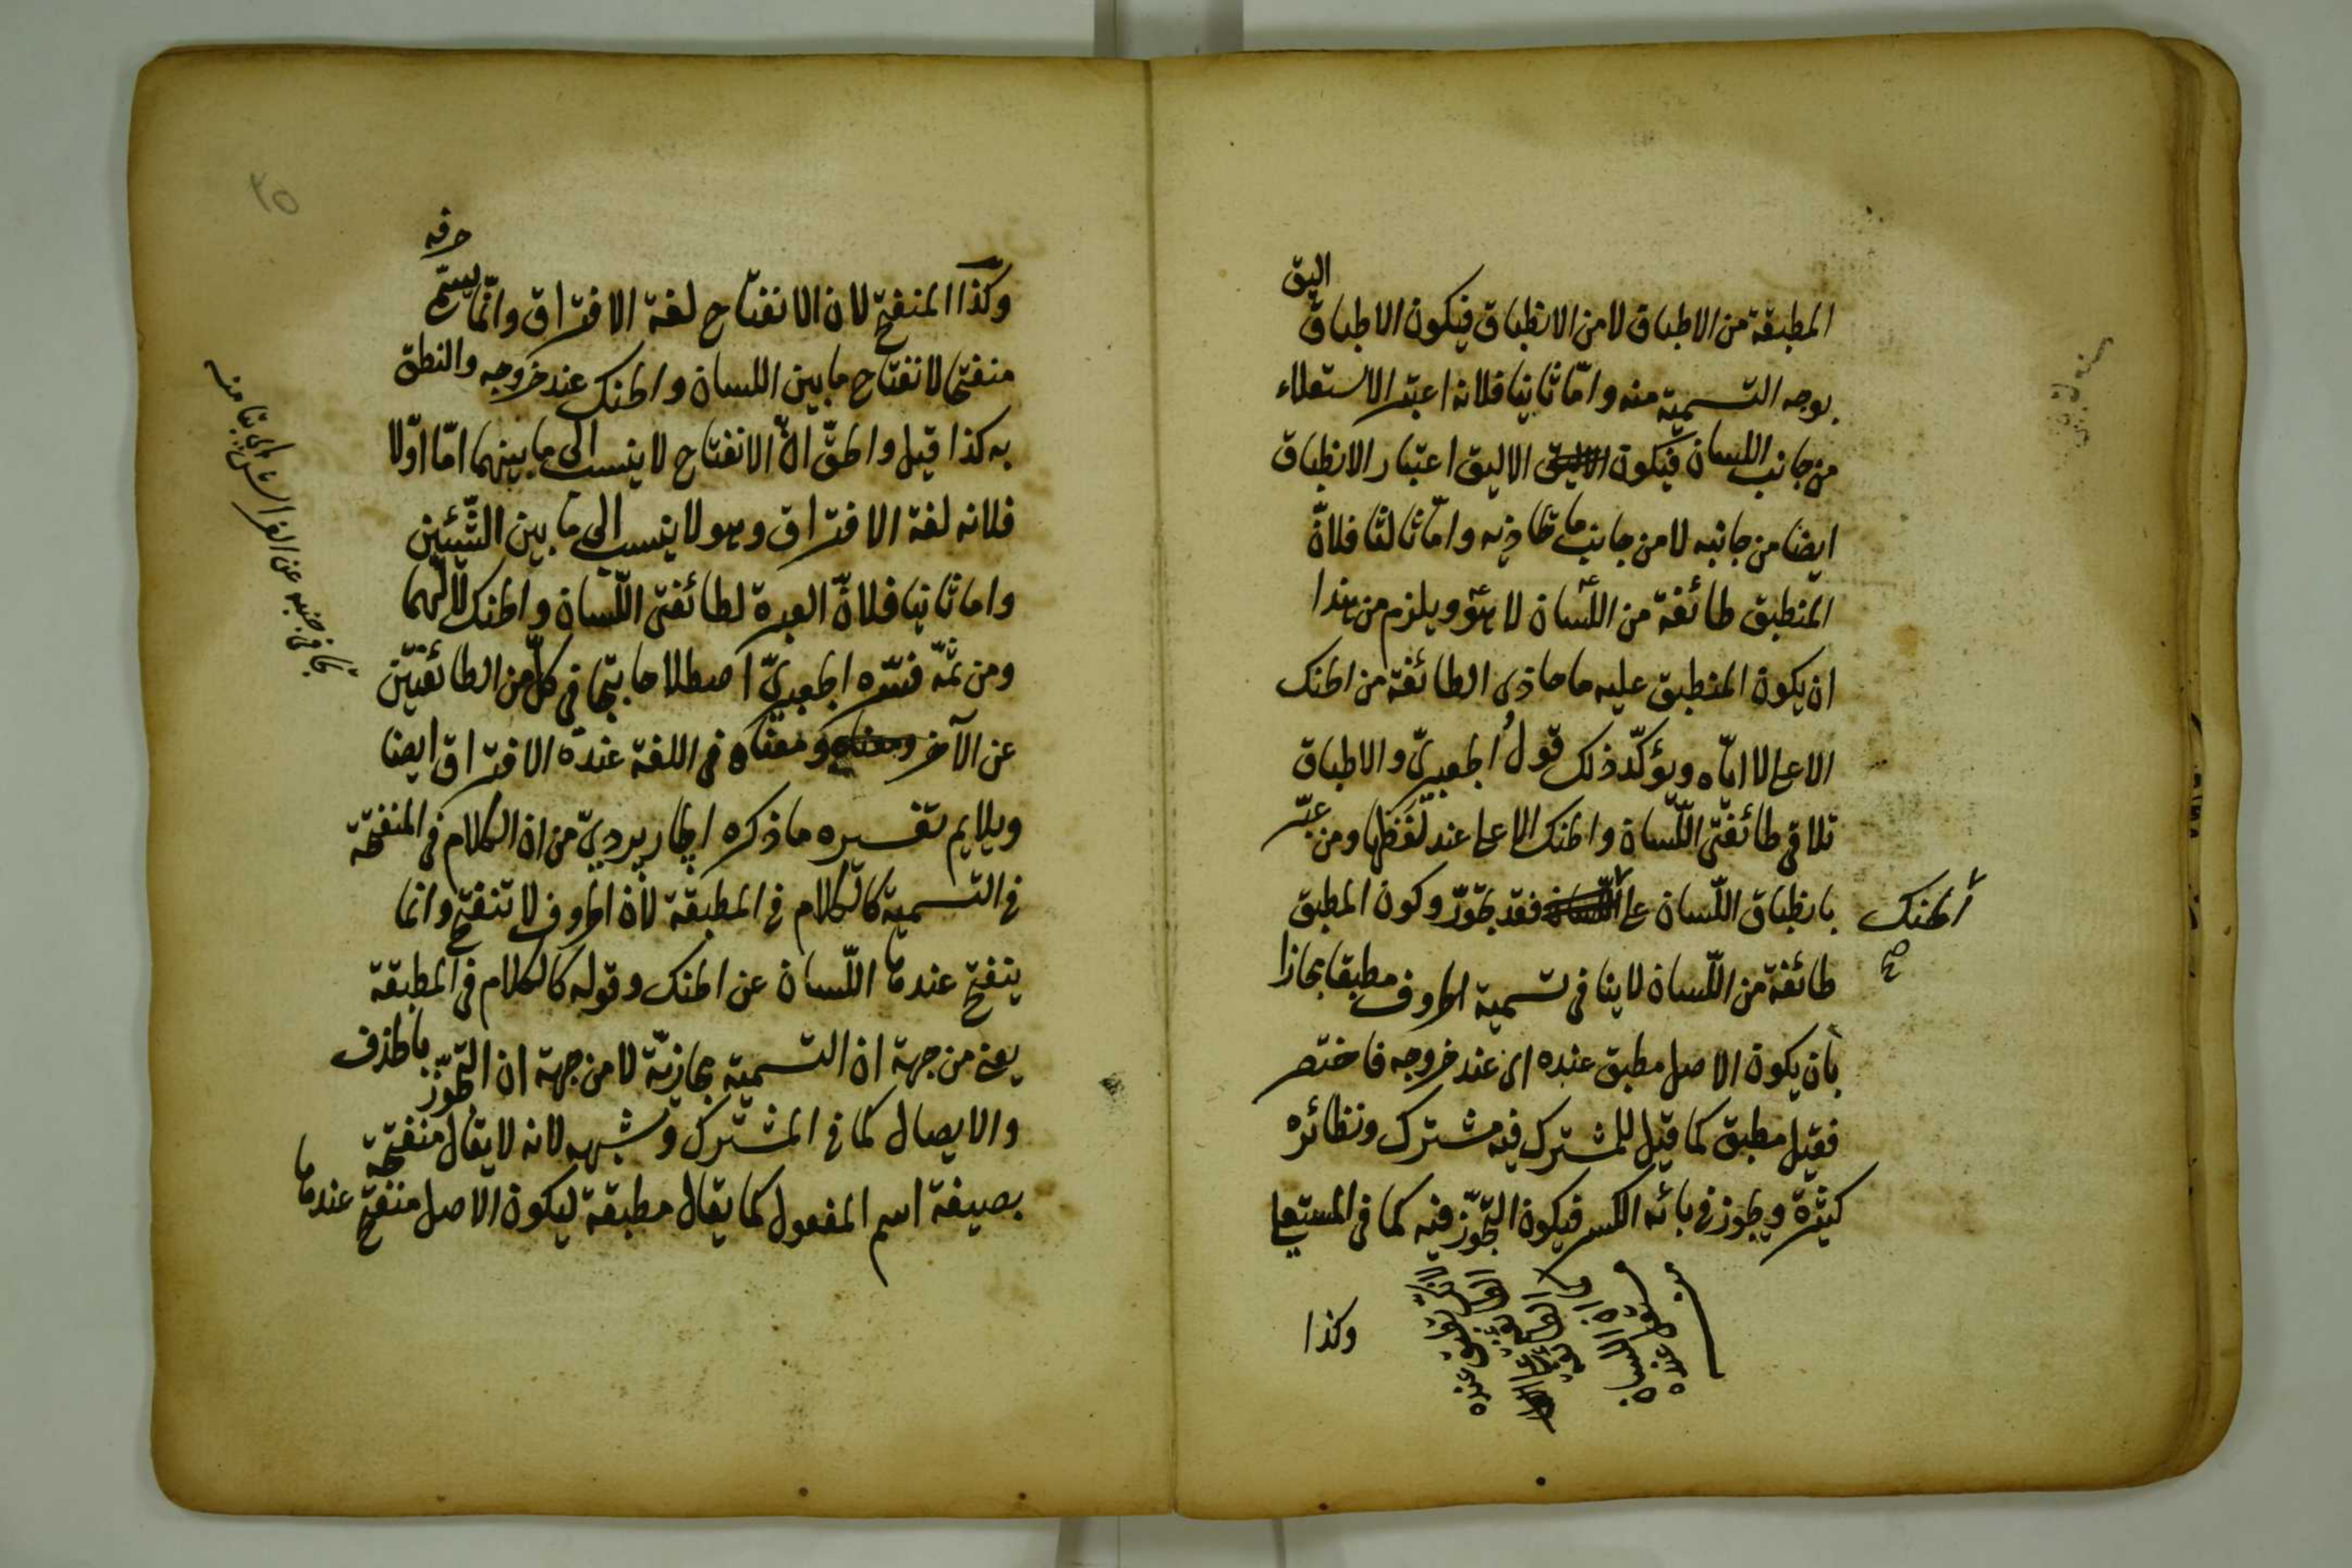 المطبقة من الاطباق لا من الانطباق فيكون الاطباق اليق
بوجه التسمية منه وامّا ثانيا فلانه اعتبر الاستعلاء
من جانب اللسان فيكون الاليق اعتبار الانطباق
ايضا من جانبه لا من جانب ما تحاذيه وامّا ثالثا فلانّ
المنطبق طائفة من اللّسان لا هو ويلزم من هذا
ان يكون المنطبق عليه ما حاذى الطائفة من الحنك
الاعلى لا ايّاه ويؤكّد ذلك قول الجعبريّ والاطباق
تلاقى طائفتى اللّسان والحنك الاعلى عند لفظها ومن عبّر
بانطباق اللّسان على الحنك فقد تجوّز وكون المطبق
طائفة من اللّسان لا ينافى تسمية الحروف مطبقا مجازا
بأن يكون الاصل مطبق عنده اى عند خروجه فاختصر
فقيل مطبق كما قيل للمشترك فيه مشترك ونظائره
كثيرة ويجوز فى بائه الكسر فيكون التجوّز فيه كما فى المستعلى
وكذا
وكذا المنفتح لان الانفتاح لغة الافتراق وانّما يسمّى حرفه
منفتحا لانفتاح ما بين اللسان والحنك عند خروجه والنطق
به كذا قيل والحقّ انّ الانفتاح لا ينسب الى ما بينهما امّا اوّلا
فلانه لغة الافتراق وهو لا ينسب الى ما بين الشّيئين
واما ثانيا فلانّ العبرة لطائفتى اللّسان والحنك لا لهما
ومن ثمّه فسّره الجعبريّ اصطلاحا بتجافى كلّ من الطائفتين
عن الآخر ومعناه فى اللغة عنده الافتراق ايضا
ويلايم تفسيره ما ذكره الجاربرديّ من ان الكلام فى المنفتحة
فى التسمية كالكلام فى المطبقة لانّ الحروف لا تنفتح وانما
ينفتح عندها اللّسان عن الحنك وقوله كالكلام فى المطبقة
يعنى من جهة ان التسمية مجازيّة لا من جهة ان التجوّز بالحذف
والايصال كما فى المشترك وشبهه لانه لا يقال منفتحة
بصيغة اسم المفعول كما يقال مطبقة ليكون الاصل منفتح عندها